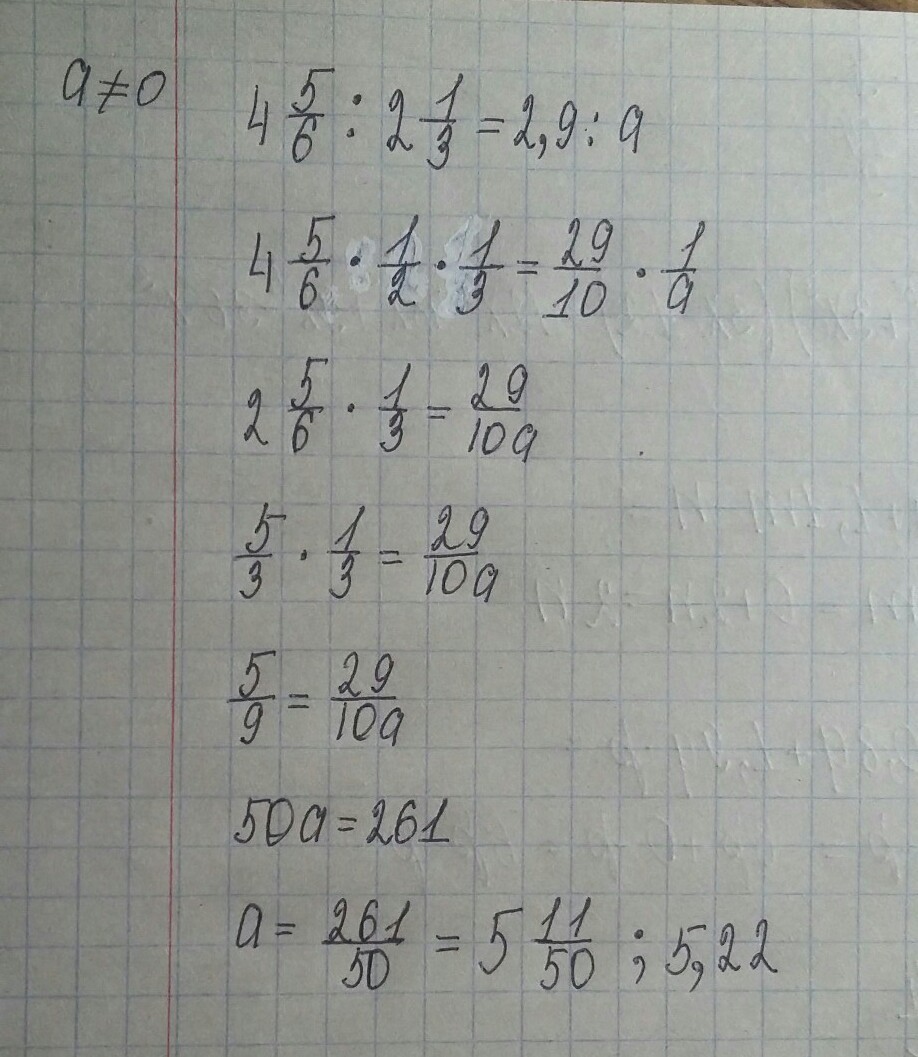 a≠0 4 5/6 : 2 1/3 = 2,9 : a
4 5/6 · 1/2 · 1/3 = 29/10 · 1/a
2 5/6 · 1/3 = 29/10a
5/3 · 1/3 = 29/10a
5/9 = 29/10a
50a = 261
a = 261/50 = 5 11/50 ; 5,22